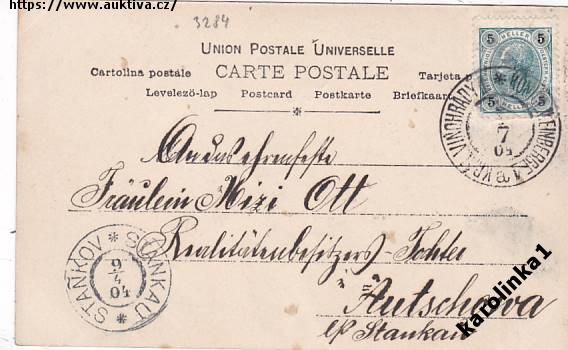 https://www.auktiva.cz/
3284
UNION POSTALE UNIVERSELLE
Cartolina postale CARTE POSTALE Tarjeta p
Levelező-lap Postcard Postkarte Briefkaart
5 HELLER 5
5 HELLER 5
KGL. VINOHRADY
7
04
An das ehrenfeste
Fräulein Mizi Ott
Realitätenbesitzers-Tochter
Autschowa
e/p Stankau
STAŇKOV * STANKAU *
6
4
04
karolinka1